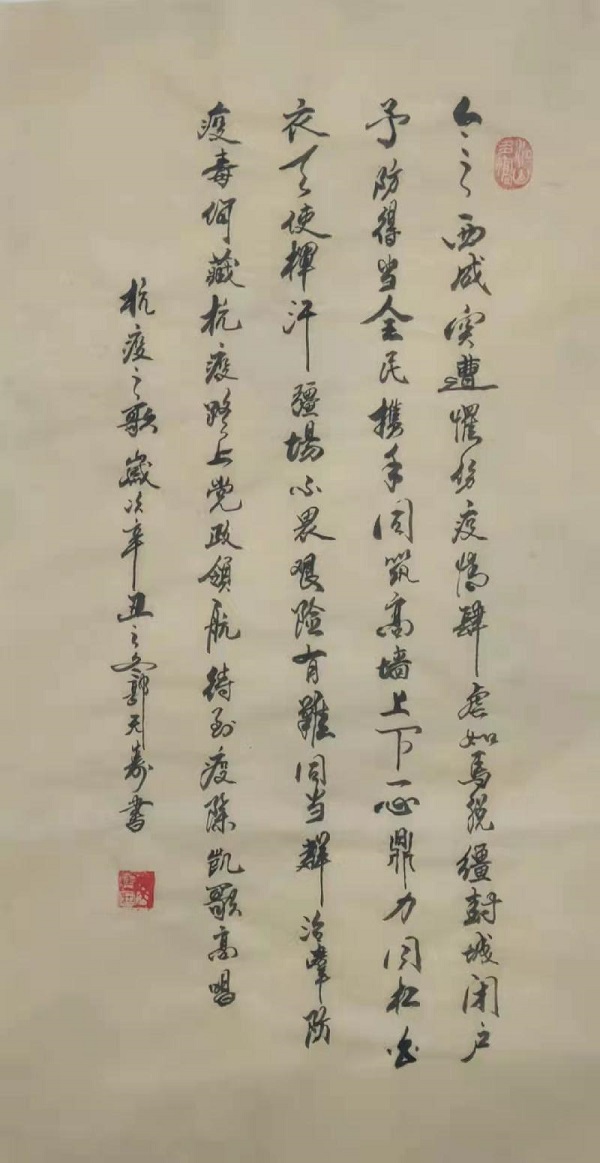 今之西咸突遭罹殃疫情肆虐如马脱缰封城闭户
予防得当全民携手同筑高墙上下一心鼎力同杠白
衣天使挥汗疆场不畏艰险有难同当群治群防
疫毒何藏抗疫路上党政领航待到疫除凯歌高唱
抗疫之歌岁次辛丑之冬郭天寿书